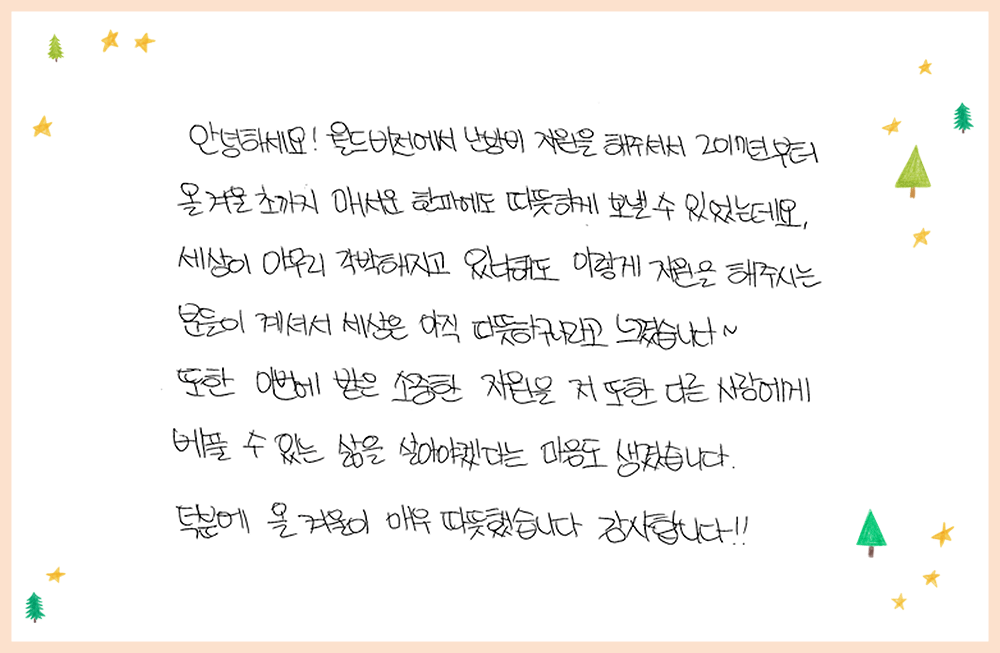 안녕하세요! 월드비전에서 난방비 지원을 해주셔서 2017년부터
올 겨울 초까지 매서운 한파에도 따뜻하게 보낼 수 있었는데요,
세상이 아무리 각박해지고 있다해도 이렇게 지원을 해주시는
분들이 계셔서 세상은 아직 따뜻하구나라고 느꼈습니다~
또한 이번에 받은 소중한 지원을 저 또한 다른 사람에게
베풀 수 있는 삶을 살아야겠다는 마음도 생겼습니다.
덕분에 올 겨울이 매우 따뜻했습니다 감사합니다!!